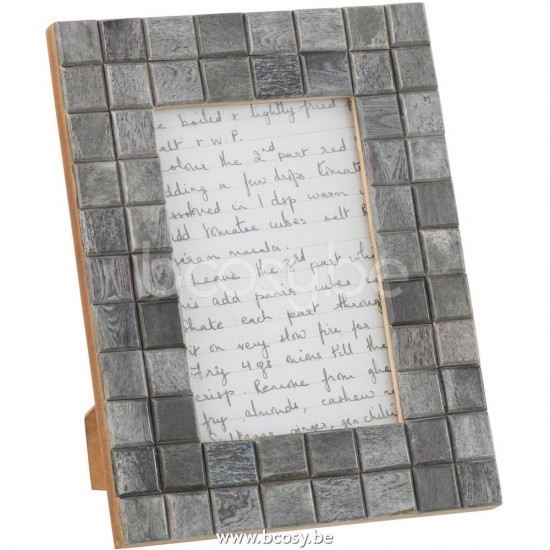 e boiled & lightly fried
alt & W.P.
olour the 2nd part red
dding a few drps tomato
ssolved in 1 dsp warm
dd tomatoe cubes salt &
aram masala.
Leave the 3rd part whi
is add panir cubes
Shake each part through
it on very slow fire for
Fry 4 gs onions till the
crisp. Remove from ghe
fry almonds, cashew
Sultanas, ginger, gn. chilli
bcosy.be
www.bcosy.be